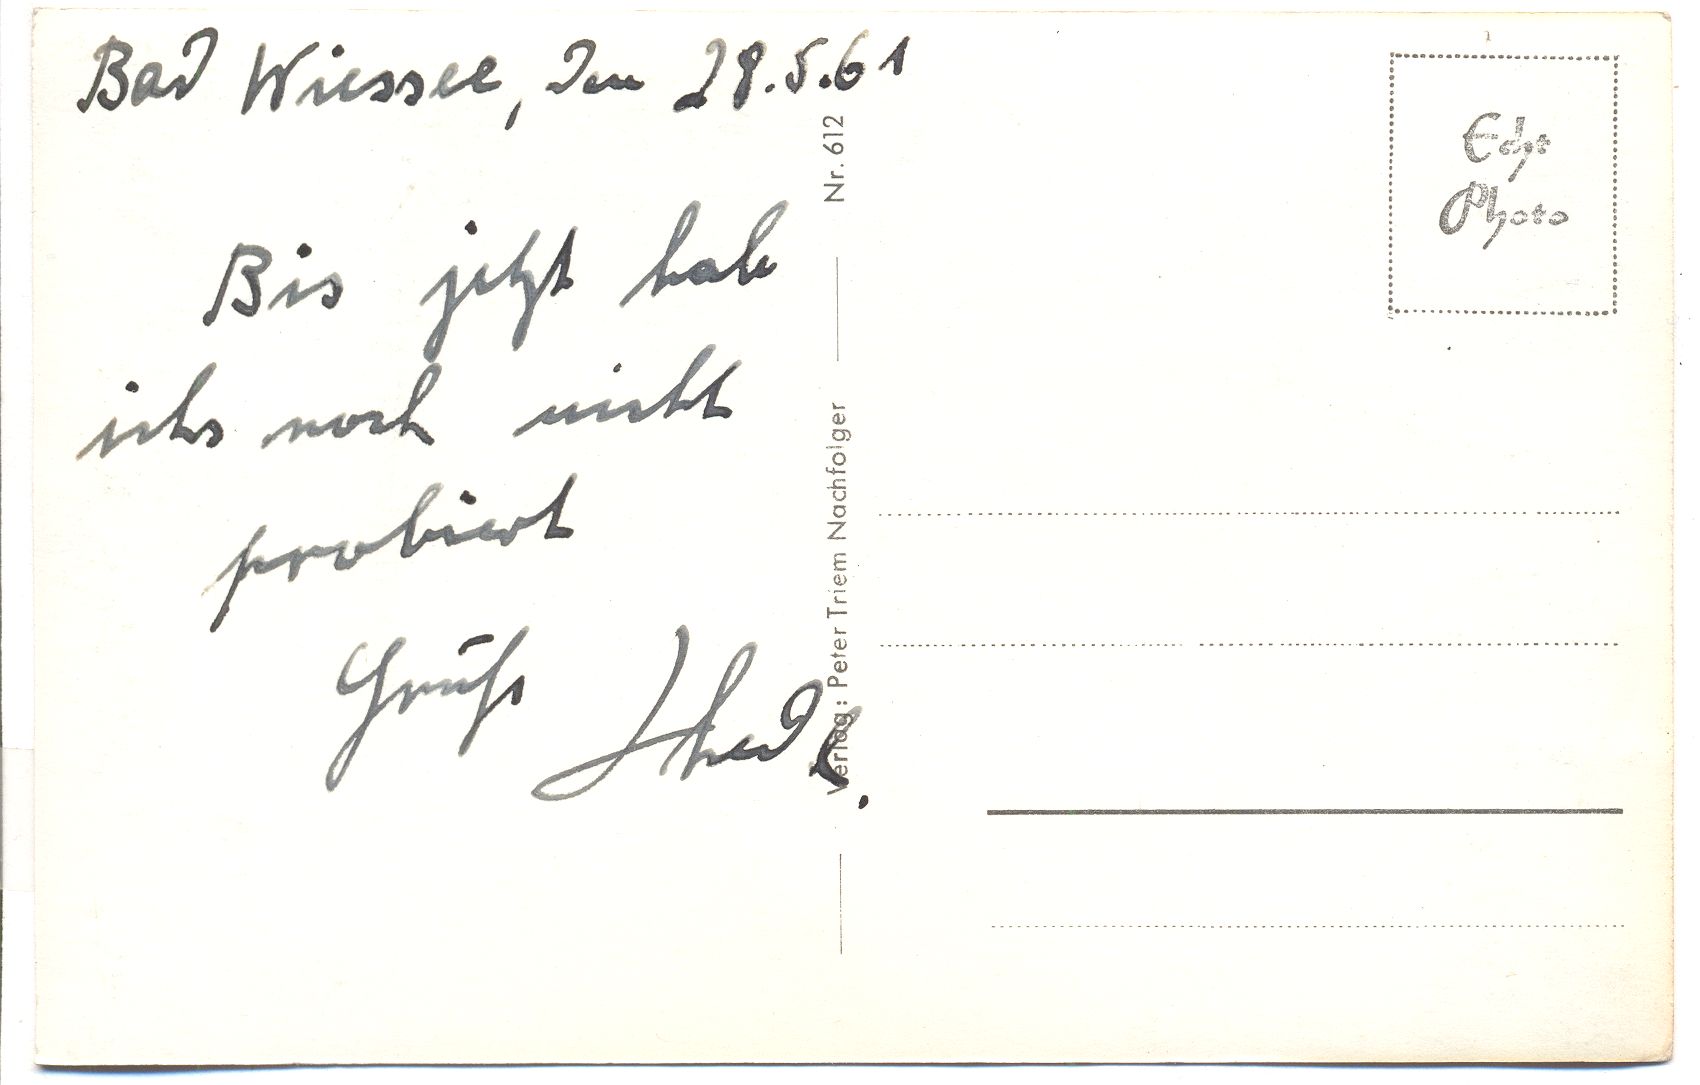 Bad Wiessee, den 28.5.61
Bis jetzt hab
ichs noch nicht
probiert
Gruß
Nr. 612
Verlag: Peter Triem Nachfolger
Echt
Photo